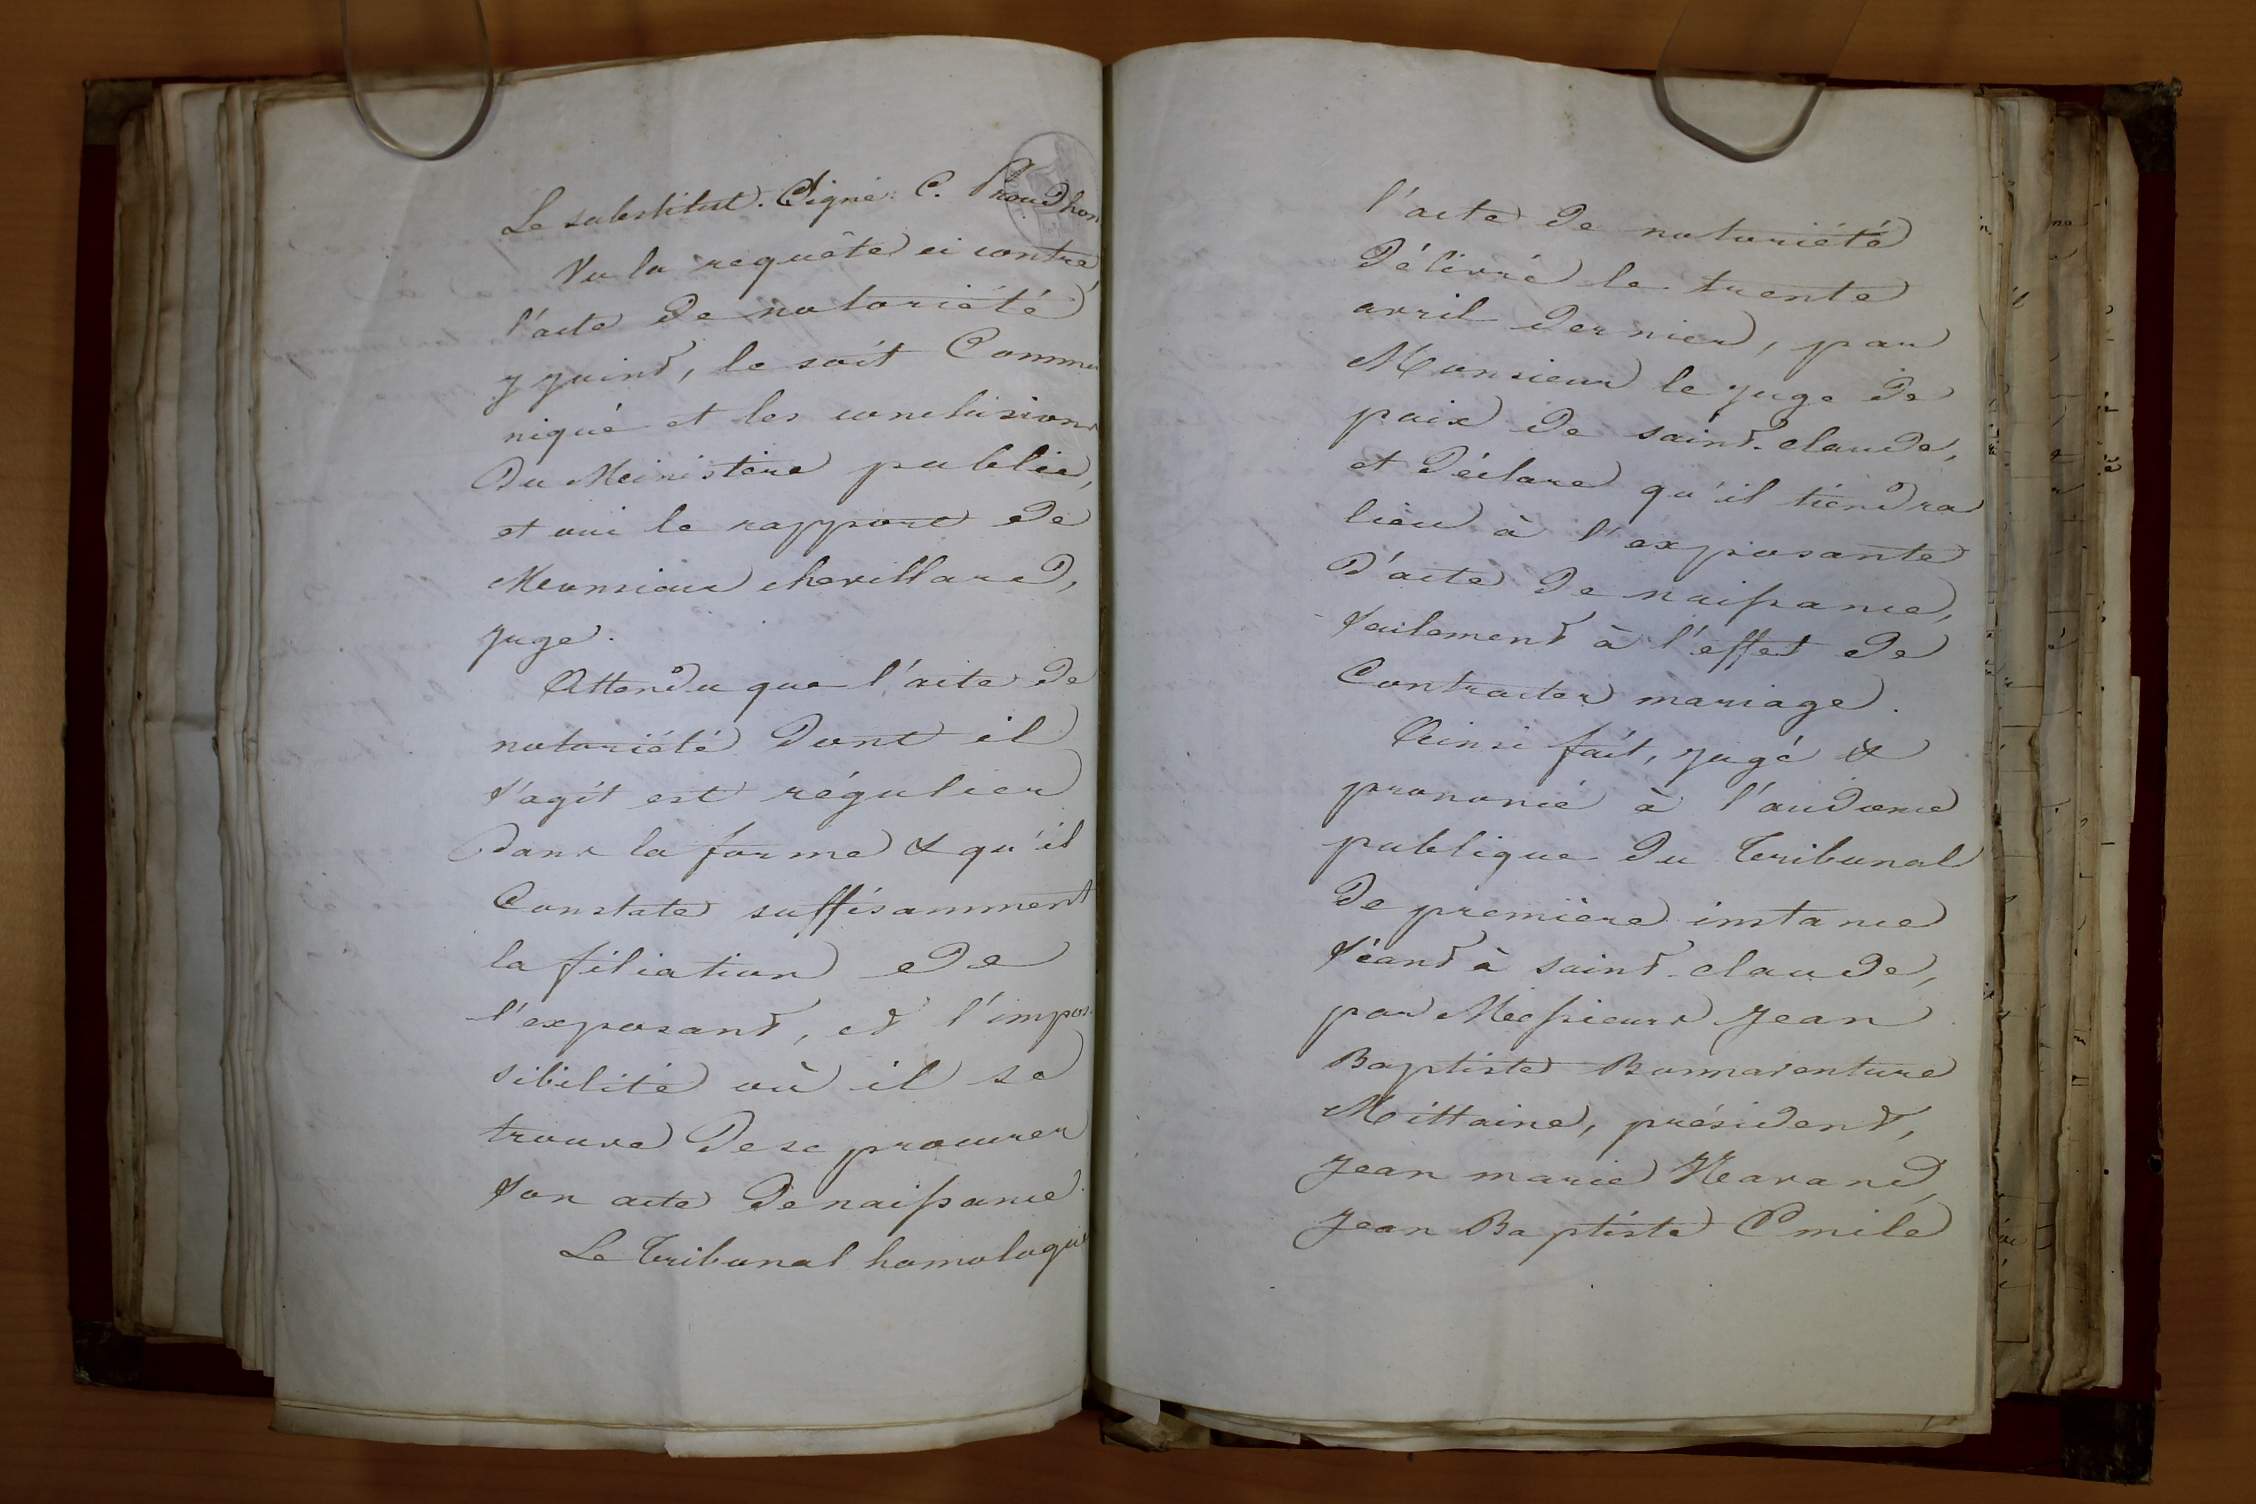 Le substitut. Signé: C. Proudhon
Vu la requête ci contre,
l'acte de notoriété
y joint, le soit Commu
niqué et les conclusions
du Ministère public,
et oui le rapport de
Monsieur chevillard,
juge.
Attendu que l'acte de
notoriété dont il
s'agit est régulier
dans la forme & qu'il
Constate suffisamment
la filiation de
l'exposant, et l'impos
sibilité où il se
trouve de se procurer
son acte de naissance.
Le Tribunal homologue
l'acte de notoriété
délivré le trente
avril dernier, par
Monsieur le juge de
paix de saint-claude,
et déclare qu'il tiendra
lieu à l'exposante
d'acte de naissance,
seulement à l'effet de
Contracter mariage.
Ainsi fait, jugé &
prononcé à l'audience
publique du Tribunal
de première instance
séant à saint-claude,
par Messieurs Jean
Baptiste Bonnaventure
Mittaine, président,
Jean marie
Jean Baptiste Emile